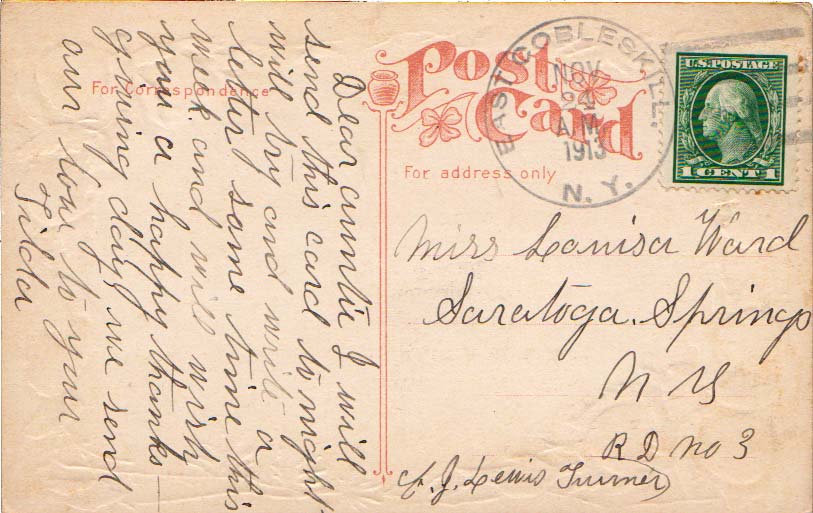 Post
Card
For Correspondence
For address only
EAST COBLESKILL,
NOV
24
A.M.
1913
N. Y.
U.S. POSTAGE
1 CENT 1
Dear auntie I will
send this card to night
will try and write a
letter some time this
week and will wish
you a happy thanks
giving day we send
our love to you
Tilda
Miss Louisa Ward
Saratoga Springs
N Y
R D no 3
J. Lewis Turner